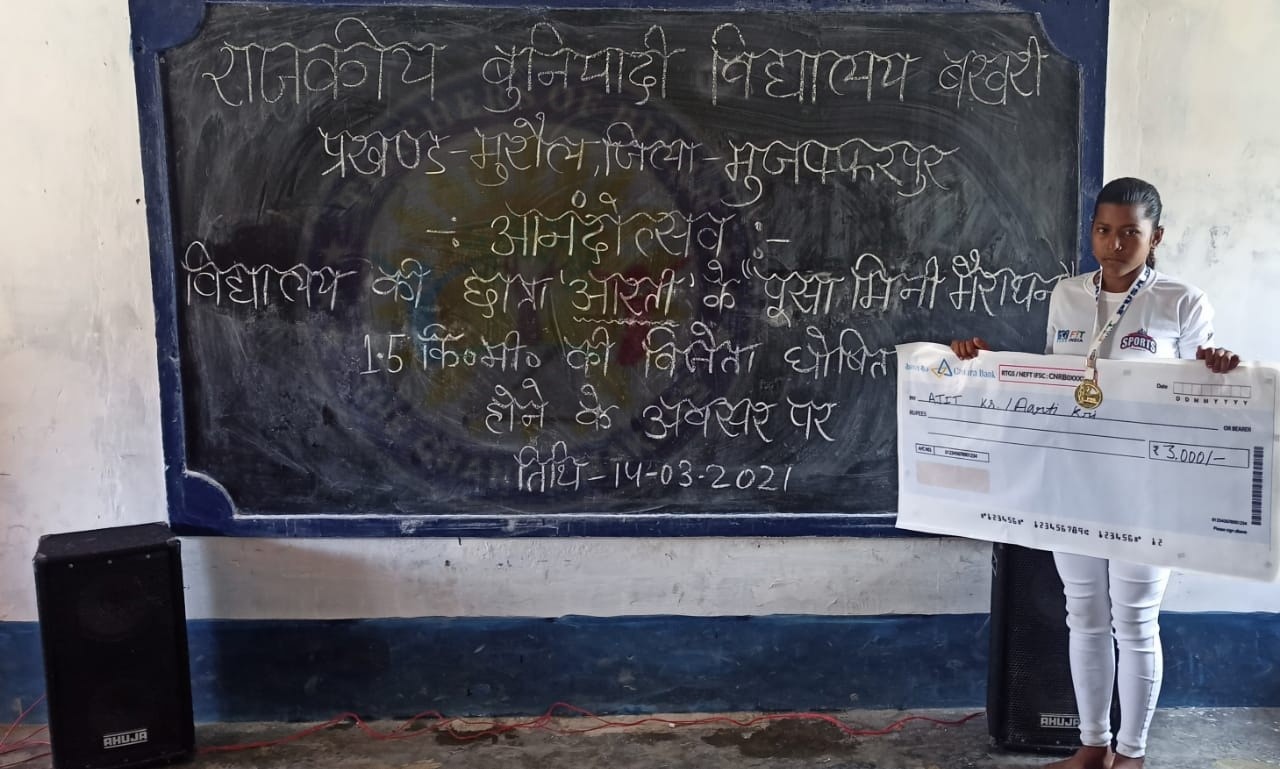 राजकीय बुनियादी विद्यालय बखरी
प्रखण्ड-मुरौल, जिला-मुजफ्फरपुर
-: आनंदोत्सव :-
विद्यालय की छात्रा 'आरती' के "पूसा मिनी मैराथन"
1.5 कि०मी० की विजेता घोषित
होने के अवसर पर
तिथि-14-03-2021
FIT
INDIA
SPORTS
Canara Bank
RTGS / NEFT IFSC: CNRB0000
Date
D D M M Y Y Y Y
AJIT Kr / Aarti Kri
RUPEES
OR BEARER
₹ 3.000/-
A/C NO.
Please sign above
⑈123456⑈ 123456789⑆ 123456⑈ 12
AHUJA
AHUJA